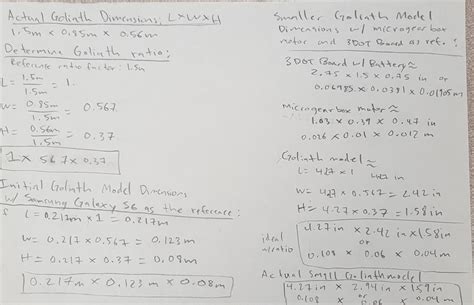 Actual Goliath Dimensions, L×W×H
1.5m × 0.85m × 0.56m
Determine Goliath ratio:
Reference ratio factor: 1.5m
L = 1.5m / 1.5m = 1.
W = 0.85m / 1.5m = 0.567
H = 0.56m / 1.5m = 0.37
1 × 567 × 0.37
Initial Goliath Model Dimensions
w/ Samsung Galaxy S6 as the reference:
L = 0.217m × 1 = 0.217m
W = 0.217 × 0.567 = 0.123m
H = 0.217 × 0.37 = 0.08m
0.217m × 0.123m × 0.08m
Smaller Goliath Model
Dimensions w/ microgearbox
motor and 3DOT Board as ref.:
3DOT Board w/ Battery ≈
2.75 × 1.5 × 0.75 in or
0.06985 × 0.0381 × 0.01905m
Microgearbox motor ≈
1.03 × 0.39 × 0.47 in
0.026 × 0.01 × 0.012 m
Goliath model ≈
L = 4.27 × 1 4.27 in
W = 4.27 × 0.567 = 2.42 in
H = 4.27 × 0.37 = 1.58 in
ideal w/ratio
4.27 in × 2.42 in × 1.58in
or
0.108 × 0.06 × 0.04m
Actual Small Goliath model
4.27 in × 2.94 in × 1.59 in
or
0.108 × 0.07 × 0.04m